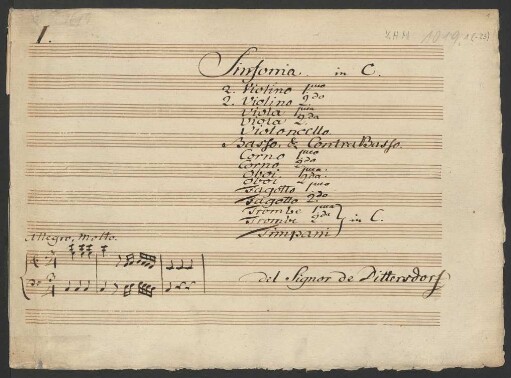 1.
Sinfonia in C.
2. Violino 1mo
2. Violino 2do
Viola 1ma
Viola 2da
Violoncello.
Basso. & ContraBasso.
Corno 1mo
Corno 2do
Oboi. 1ma.
Oboi 2da.
Fagotto 1mo
Fagotto 2do
Trombe 1ma
Trombe 2da in C.
Timpani
Allegro, Molto.
del Signor de Dittersdorf